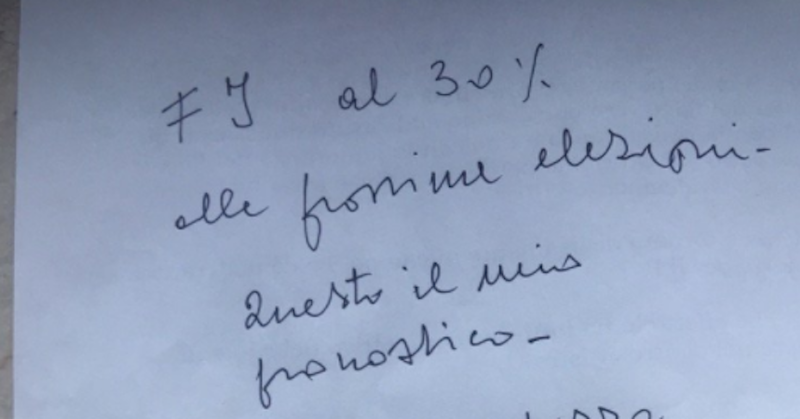 FI al 30%
alle prossime elezioni-
Questo il mio
pronostico-